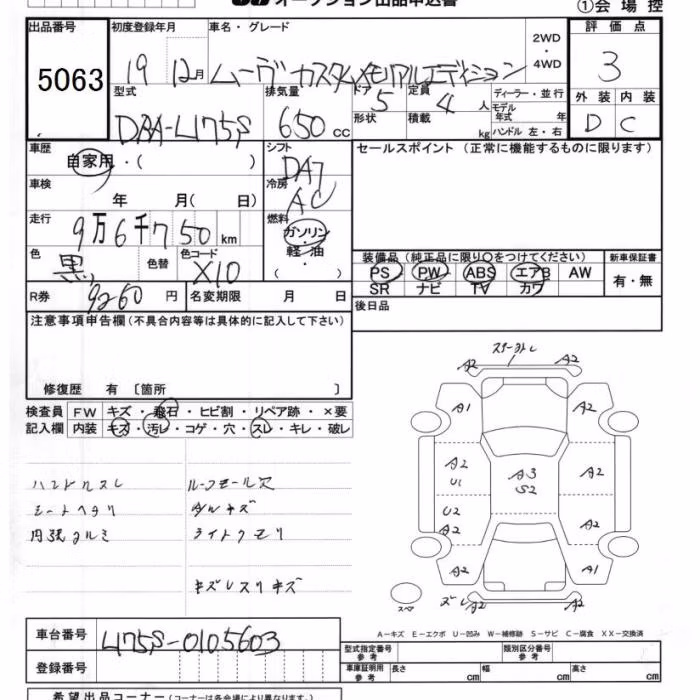 オークション出品申込書
①会場控
出品番号
5063
初度登録年月
19 12月
車名・グレード
ムーヴ カスタムメモリアルエディション
2WD
・
4WD
評価点
3
型式
DBA-L175S
排気量
650 cc
ドア
5
定員
4 人
ディーラー・並行
モデル年式 年
形状
積載
kg
ハンドル 左・右
外装 内装
D C
車歴
自家用・( )
シフト
DA7
セールスポイント (正常に機能するものに限ります)
車検
年 月( 日)
冷房
AC
走行
9万6千750km
燃料
ガソリン
軽油
( ・ )
色
黒
色替
色コード
X10
装備品 (純正品に限り○をつけてください)
新車保証書
PS PW ABS エアB AW
SR ナビ TV カワ
有・無
R券
9260 円
名変期限 月 日
後日品
注意事項申告欄 (不具合内容等は具体的に記入して下さい)
修復歴 有 〔箇所 〕
検査員 FW キズ・飛石・ヒビ割・リペア跡・×要
記入欄 内装 キズ・汚レ・コゲ・穴・スレ・キレ・破レ
ハンドルスレ ルーフモール欠
シートヘタリ
内張クルミ ライトクモリ
キズレスリキズ
A2 A2
A1 A2
A2 A3 A2
U1 S2
U2 A2
A2
A2 A1
スペア
ズレ A2 A2
車台番号
L175S-0105603
登録番号
A−キズ E−エクボ U−凹み W−補修跡 S−サビ C−腐食 XX−交換済
型式指定番号 参考
類別区分番号 参考
車庫証明用 参考
長さ cm 幅 cm 高さ cm
希望出品コーナー (コーナーは各会場により異なります)